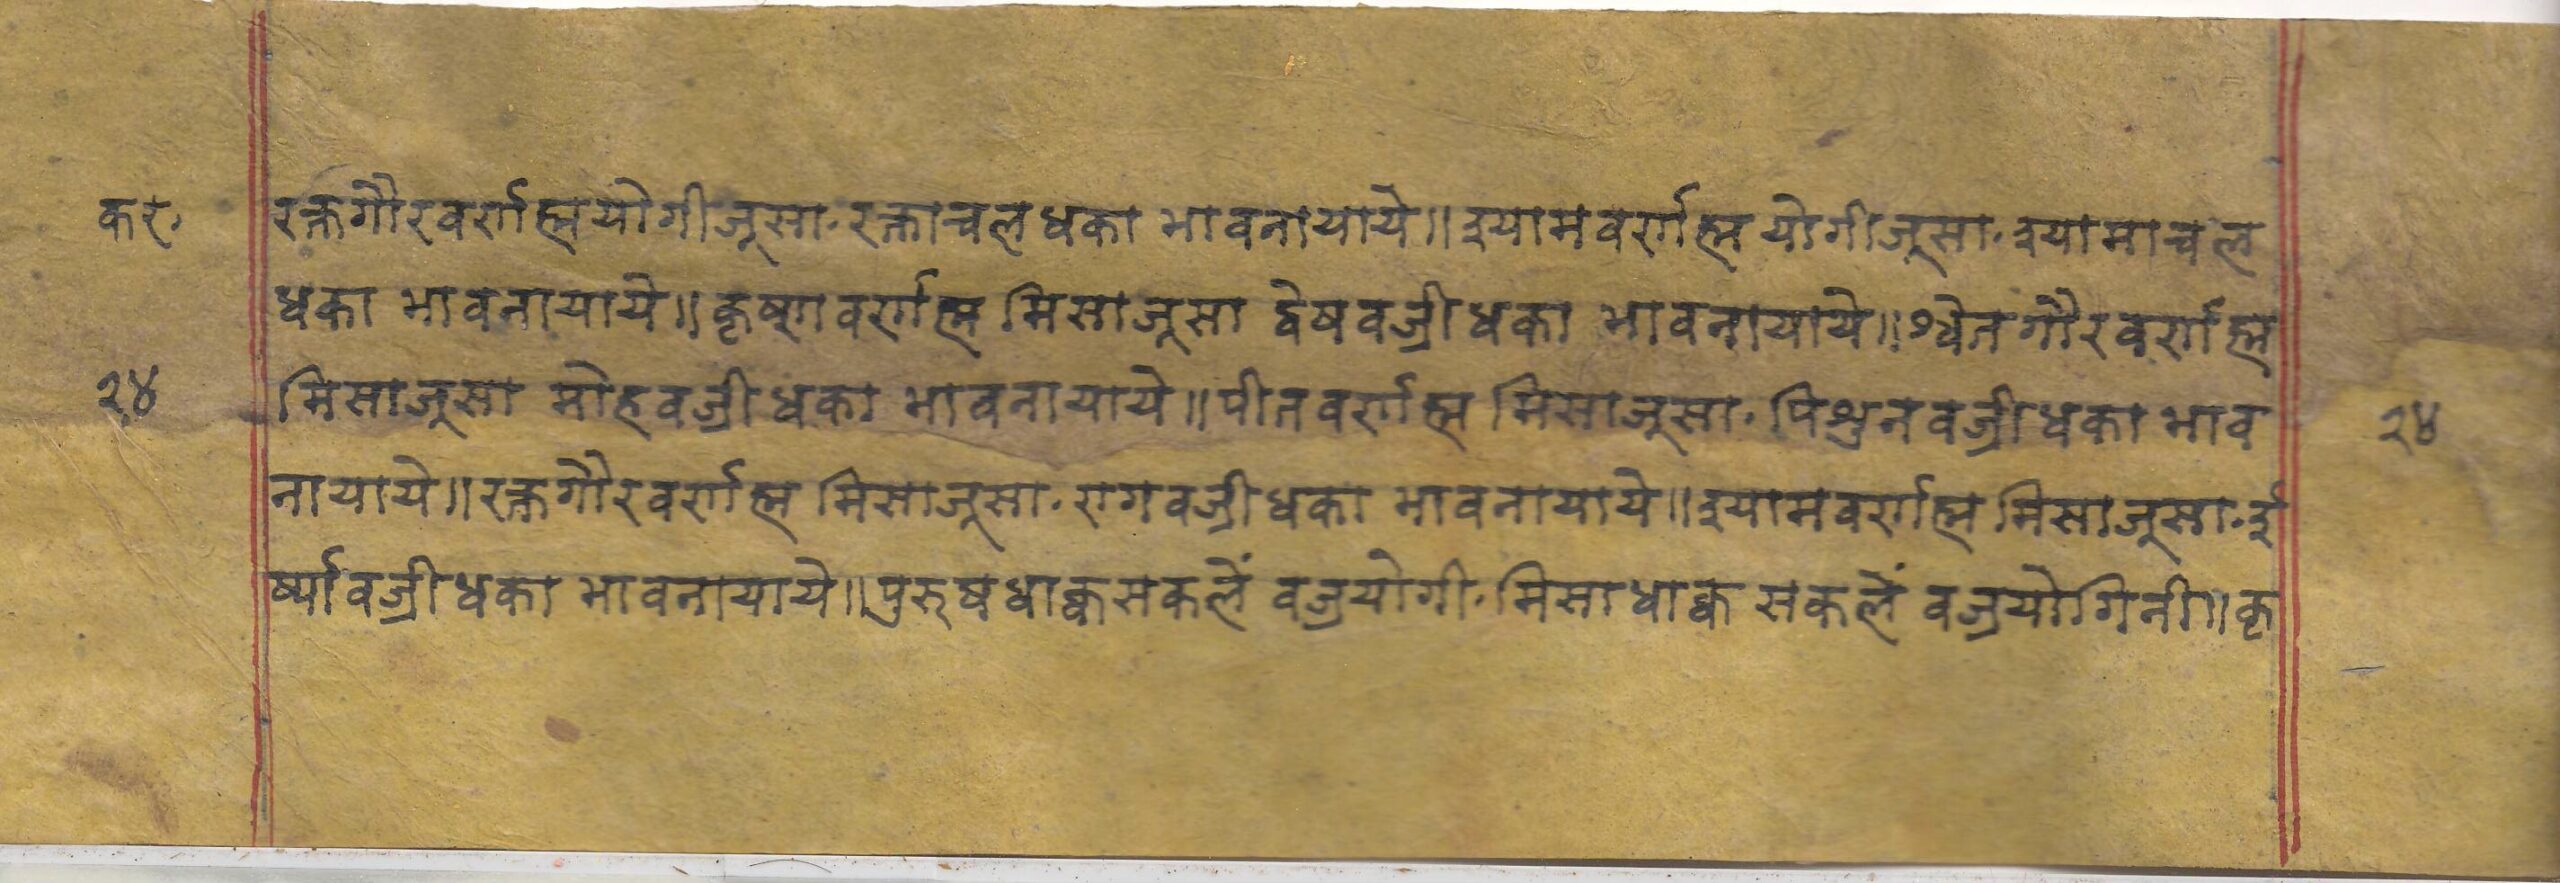 कर॰
रक्तगौरवर्णह्म योगीजूसा॰ रक्ताचल धका भावनायाये॥ श्यामवर्णह्म योगीजूसा॰ श्यामाचल
धका भावनायाये॥ कृष्णवर्णह्म मिसाजूसा द्वेषवज्री धका भावनायाये॥ श्वेतगौरवर्णह्म
२४
मिसाजूसा मोहवज्री धका भावनायाये॥ पीतवर्णह्म मिसाजूसा॰ पिशुनवज्री धका भाव
२४
नायाये॥ रक्तगौरवर्णह्म मिसाजूसा॰ रागवज्री धका भावनायाये॥ श्यामवर्णह्म मिसाजूसा॰ ई
र्ष्यावज्री धका भावनायाये॥ पुरुषधाक्व सकलें वज्रयोगी॰ मिसाधाक्व सकलें वज्रयोगिनी॥ कृ